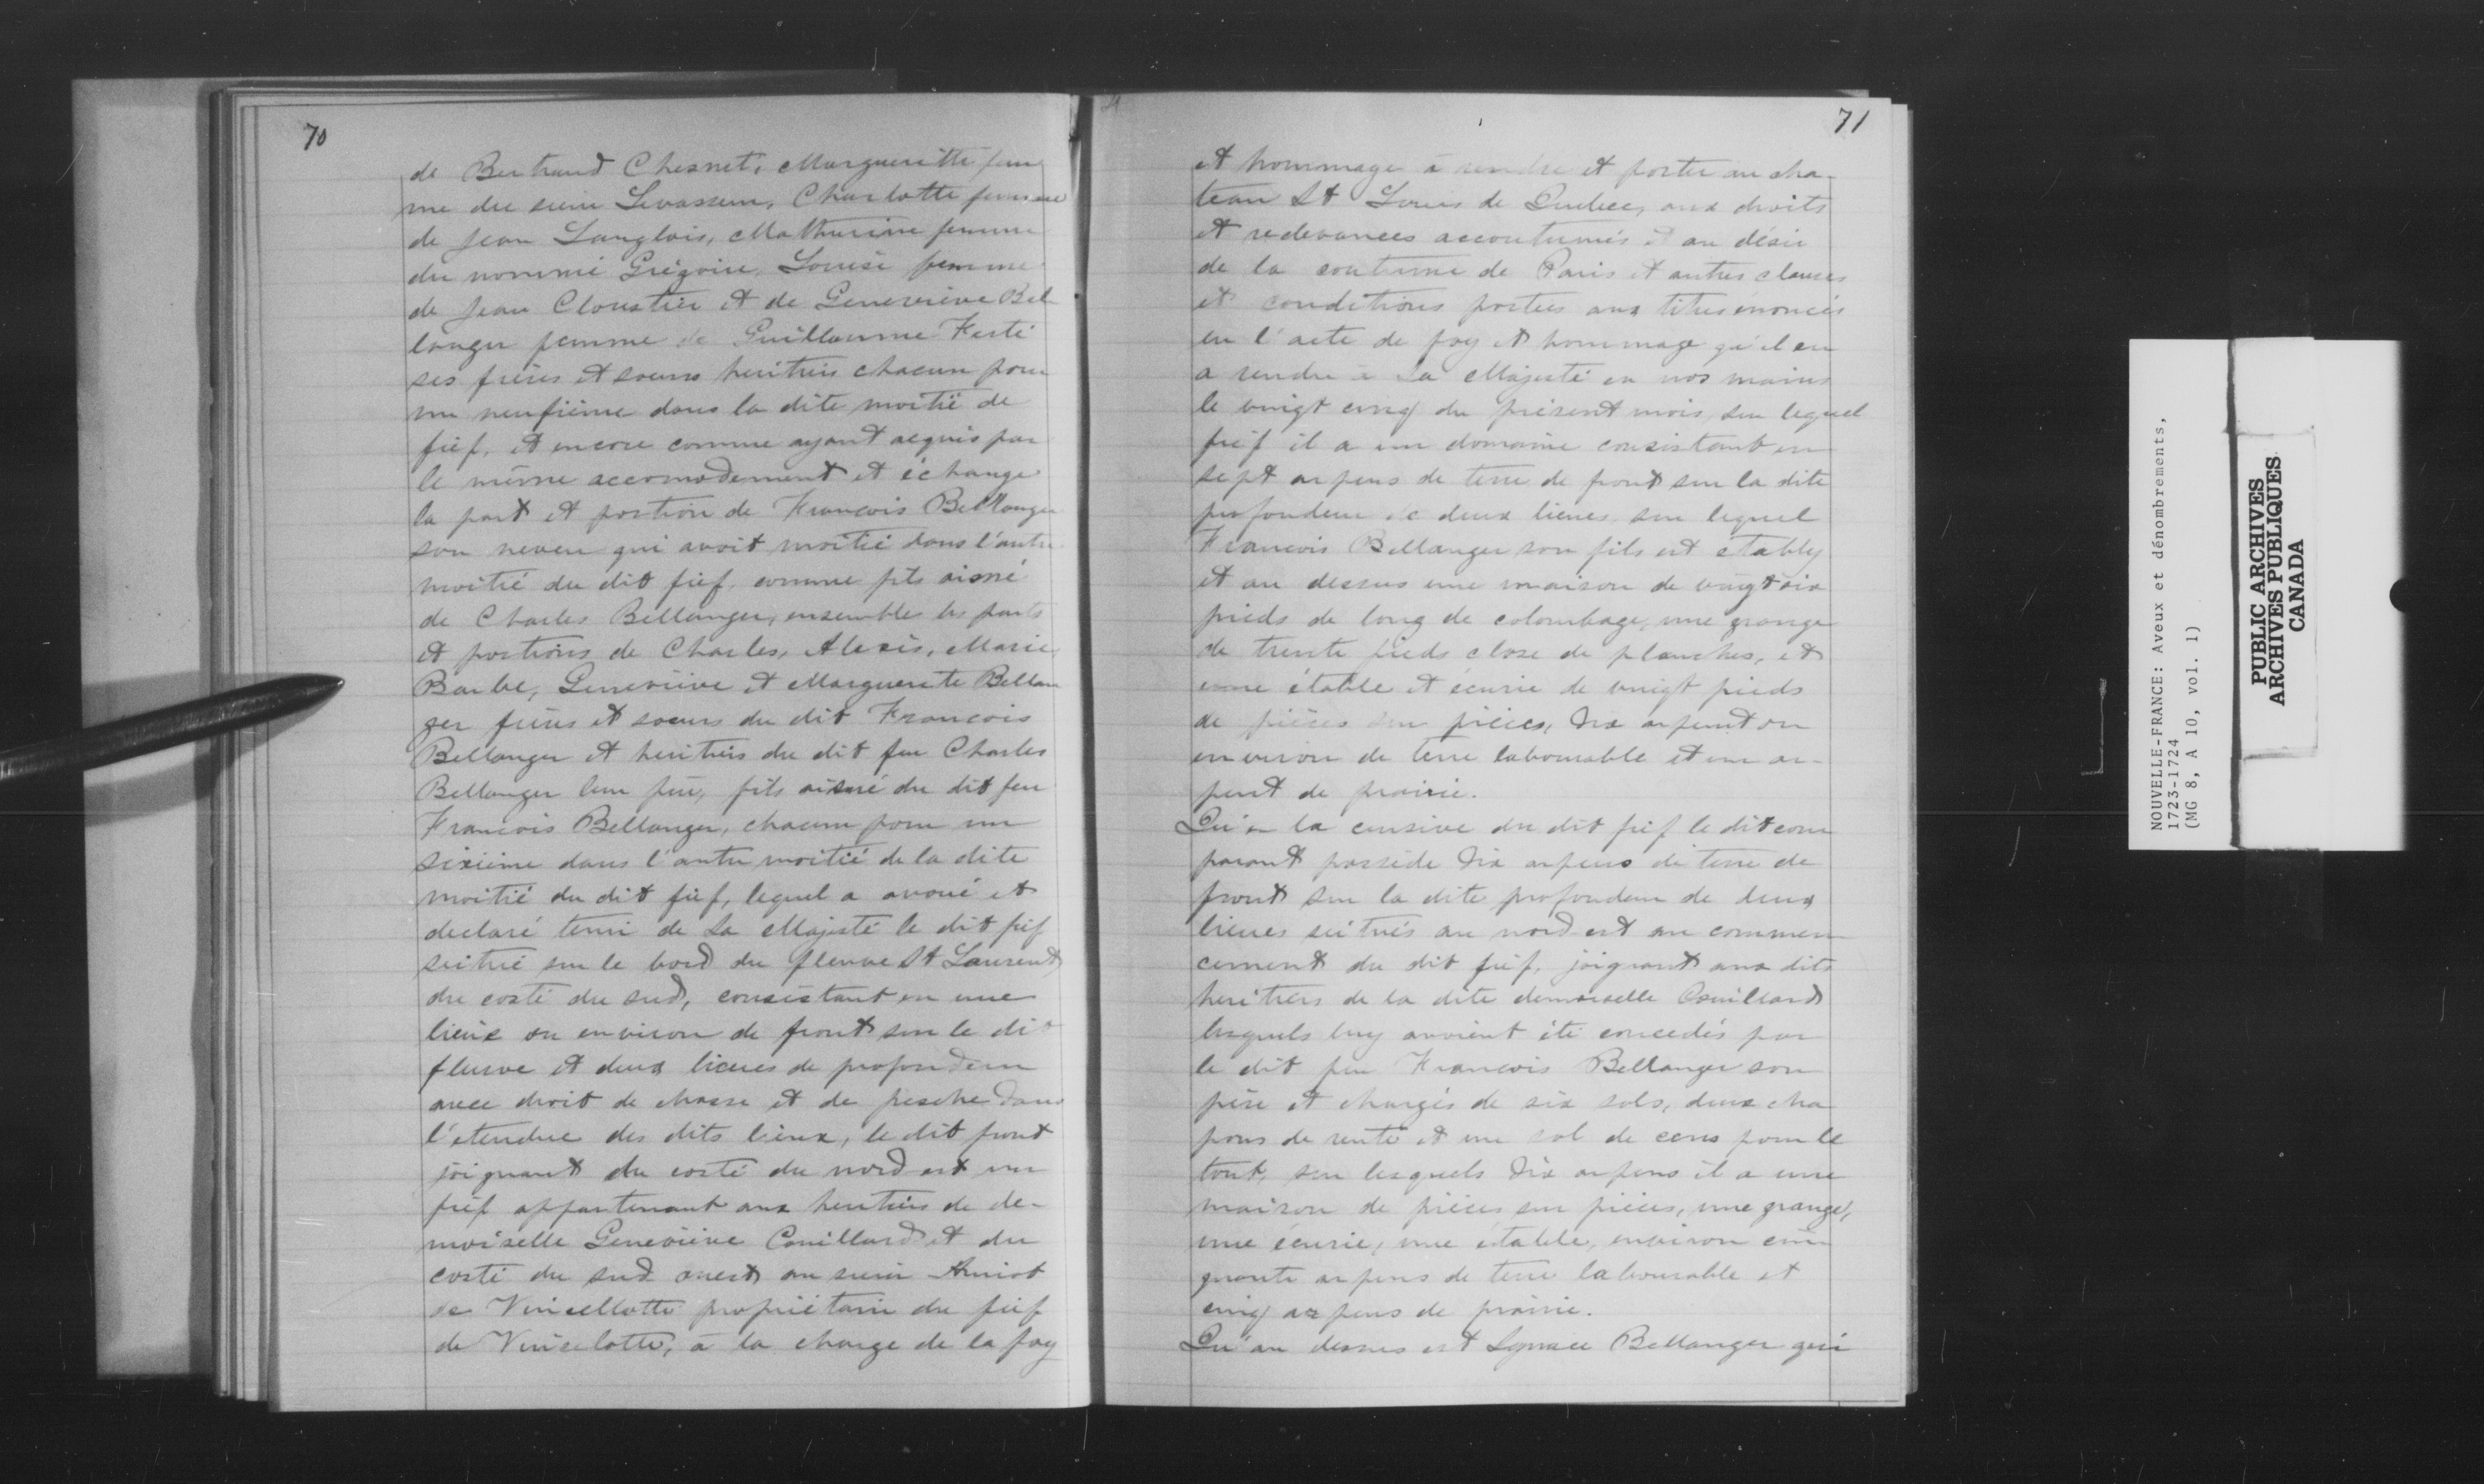 70
de Bertrand Chesnet, Margueritte fem
me du sieur Levasseur, Charlotte femme
de Jean Langlois, Mathurine femme
du nommé Grégoire, Louise femme
de Jean Cloustier et de Geneviève Bel
langer femme de Guillaume Ferté
ses frères et soeurs heritiers chacun pour
un neufième dans la dite moitié de
fief, et encore comme ayant acquis par
le même accomodement et échange
la part et portion de Francois Bellanger
son neveu qui avoit moitié dans l'autre
moitié du dit fief, comme fils aisné
de Charles Bellanger, ensemble les parts
et portions de Charles, Alexis, Marie,
Barbe, Geneviève et Marguerite Bellan
ger frères et soeurs du dit Francois
Bellanger et heritiers du dit feu Charles
Bellanger leur père, fils aisné du dit feu
Francois Bellanger, chacun pour un
sixième dans l'autre moitié de la dite
moitié du dit fief, lequel a avoué et
declaré tenir de Sa Majesté le dit fief
scitué sur le bord du fleuve St Laurent
du costé du sud, consistant en une
lieue ou environ de front sur le dit
fleuve et deux lieues de profondeur
avec droit de chasse et de pesche dans
l'etendue des dits lieux, le dit front
joignant du costé du nord est un
fief appartenant aux heritiers de de-
moiselle Geneviève Couillard et du
costé du sud ouest au sieur Amiot
de Vincellotte propriétaire du fief
de Vincelotte, à la charge de la foy
71
et hommage à rendre et porter au cha-
teau St Louis de Quebec, aux droits
et redevances accoutumés et au désir
de la coutume de Paris et autres clauses
et conditions portées aux titres énoncés
en l'acte de foy et hommage qu'il en
a rendu à Sa Majesté en nos mains
le vingt cinq du présent mois, sur lequel
fief il a un domaine consistant en
sept arpens de terre de front sur la dite
profondeur de deux lieues sur lequel
Francois Bellanger son fils est etably
et au dessus une maison de vingt six
pieds de long de colombage, une grange
de trente pieds close de planches, et
une étable et écurie de vingt pieds
de pièces sur pièces, dix arpent ou
environ de terre labourable et un ar-
pent de prairie.
Qu'en la censive du dit fief le dit com
parant possède dix arpens de terre de
front sur la dite profondeur de deux
lieues scitués au nord est au commen
cement du dit fief, joignant aux dits
heritiers de la dite demoiselle Couillard
lesquels luy avoient été concedés par
le dit feu Francois Bellanger son
père et chargés de six sols, deux cha
pons de rente et un sol de cens pour le
tout, sur lesquels dix arpens il a une
maison de pièces sur pièces, une grange,
une écurie, une étable, environ cin
quante arpens de terre labourable et
cinq arpens de prairie.
Qu'au dessus est Ignace Bellanger qui
NOUVELLE-FRANCE: Aveux et dénombrements,
1723-1724
(MG 8, A 10, vol. 1)
PUBLIC ARCHIVES
ARCHIVES PUBLIQUES
CANADA